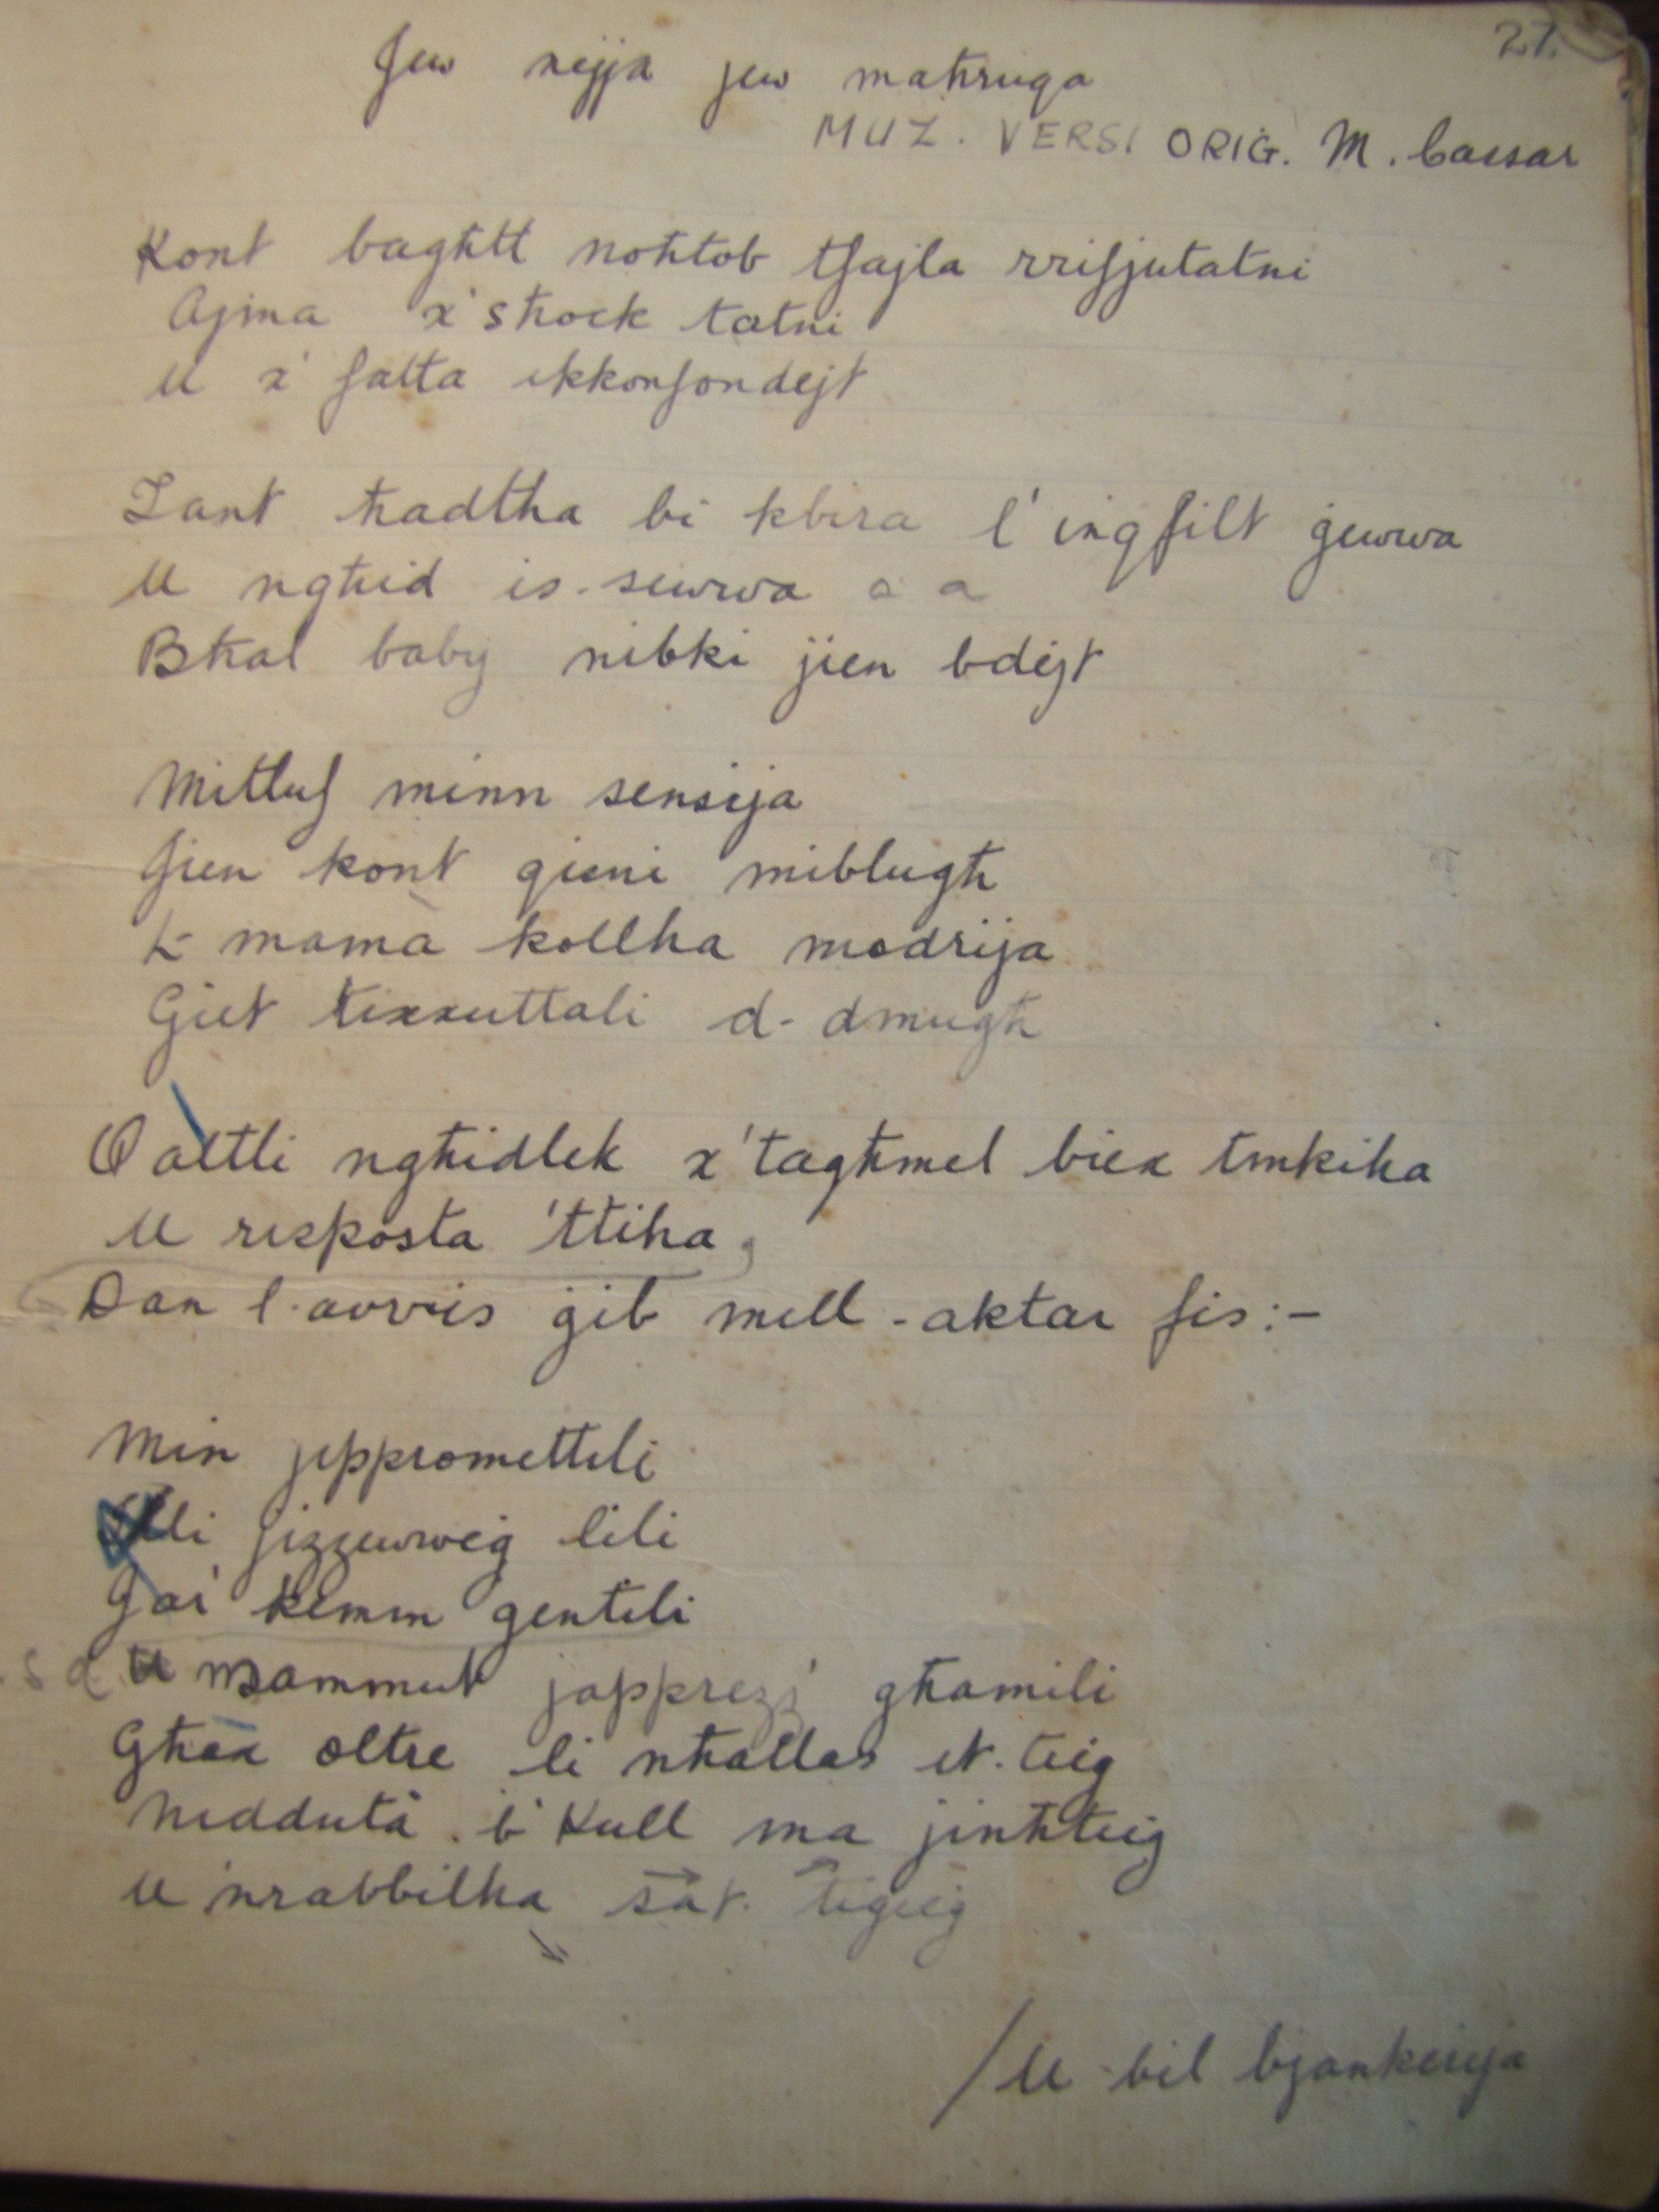 27.
Jew nejja jew maħruqa
MUZ. VERSI ORIĠ. M. Cassar
Kont bagħtt noħtob tfajla rrifjutatni
Ajma x'shock tatni
U x' falta ikkonfondejt
Tant ħadtha bi kbira l' inqfilt ġewwa
U ngħid is-sewwa a a
Bħal baby nibki jien bdejt
Mitluf minn sensija
Jien kont qieni miblugħ
L-mamà kollha madrija
Ġiet tixxuttali d-dmugħ
Qaltli ngħidlek x'tagħmel biex tinkiha
U risposta 'ttiha,
Dan l-avvis ġib mill-aktar fis:-
Min jippromettili
Illi jiżżewweġ lili
Jaf kemm ġentili
U mammut japprezz' għamili
Għax oltre li nħallas it-tieġ
Niddutà b'kull ma jinħtieġ
U nrabbilha sat-tiġieġ
/ U bil bjankerija